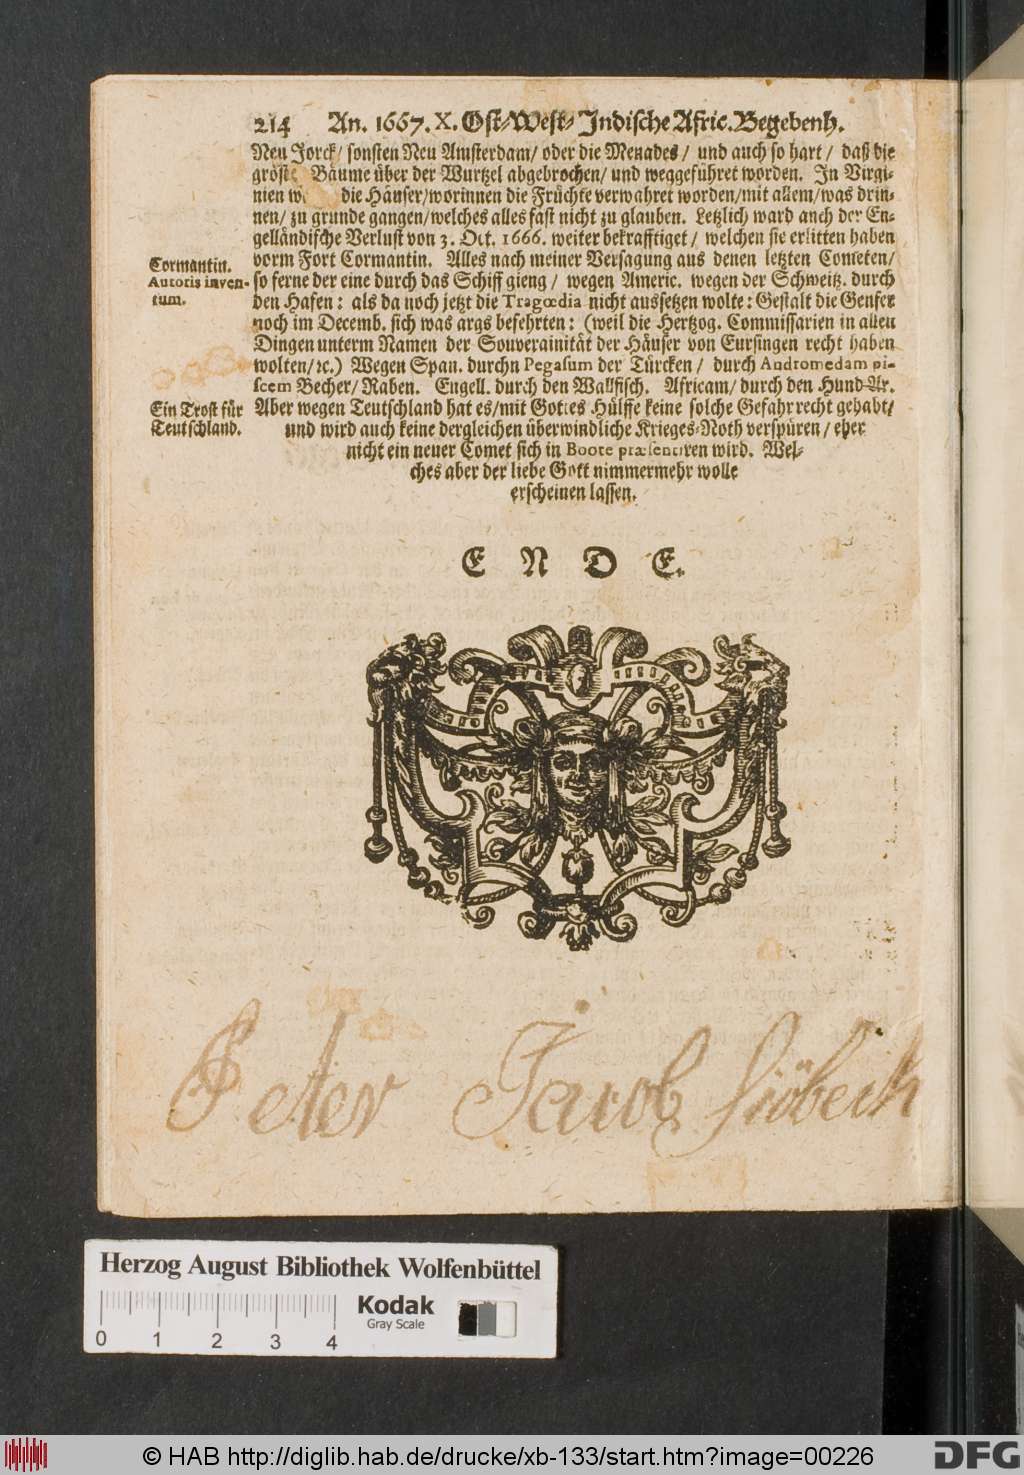 214 An. 1667. X. Ost-/West-/Indische Afric. Begebenh.
Neu Jorck/ sonsten Neu Amsterdam/ oder die Menades/ und auch so hart/ daß die
gröste Bäume über der Wurtzel abgebrochen/ und weggeführet worden. In Virgi-
nien die Häuser/worinnen die Früchte verwahret worden/mit allem/was drin-
nen/ zu grunde gangen/welches alles fast nicht zu glauben. Letzlich ward auch der En-
gelländische Verlust von 3. Oct. 1666. weiter bekrafftiget/ welchen sie erlitten haben
vorm Fort Cormantin. Alles nach meiner Versagung aus denen letzten Cometen/
so ferne der eine durch das Schiff gieng/ wegen Americ. wegen der Schweitz. durch
den Hafen: als da noch jetzt die Tragœdia nicht aussetzen wolte: Gestalt die Genfer
noch im Decemb. sich was args befehrten: (weil die Hertzog. Commissarien in allen
Dingen unterm Namen der Souverainität der Häuser von Eursingen recht haben
wolten/ ꝛc.) Wegen Span. durchn Pegasum der Türcken/ durch Andromedam pi-
scem Becher/ Raben. Engell. durch den Wallfisch. Africam/ durch den Hund-Ar.
Aber wegen Teutschland hat es/mit Gottes Hülffe keine solche Gefahr recht gehabt/
und wird auch keine dergleichen überwindliche Krieges-Noth verspüren/ eher
nicht ein neuer Comet sich in Boote præsentiren wird. Wel-
ches aber der liebe Gott nimmermehr wolle
erscheinen lassen.
Cormantin.
Autoris inven-
tum.
Ein Trost für
Teutschland.
E N D E.
Peter Jacob Siöbeck
Herzog August Bibliothek Wolfenbüttel
Kodak
Gray Scale
0 1 2 3 4
© HAB http://diglib.hab.de/drucke/xb-133/start.htm?image=00226
DFG